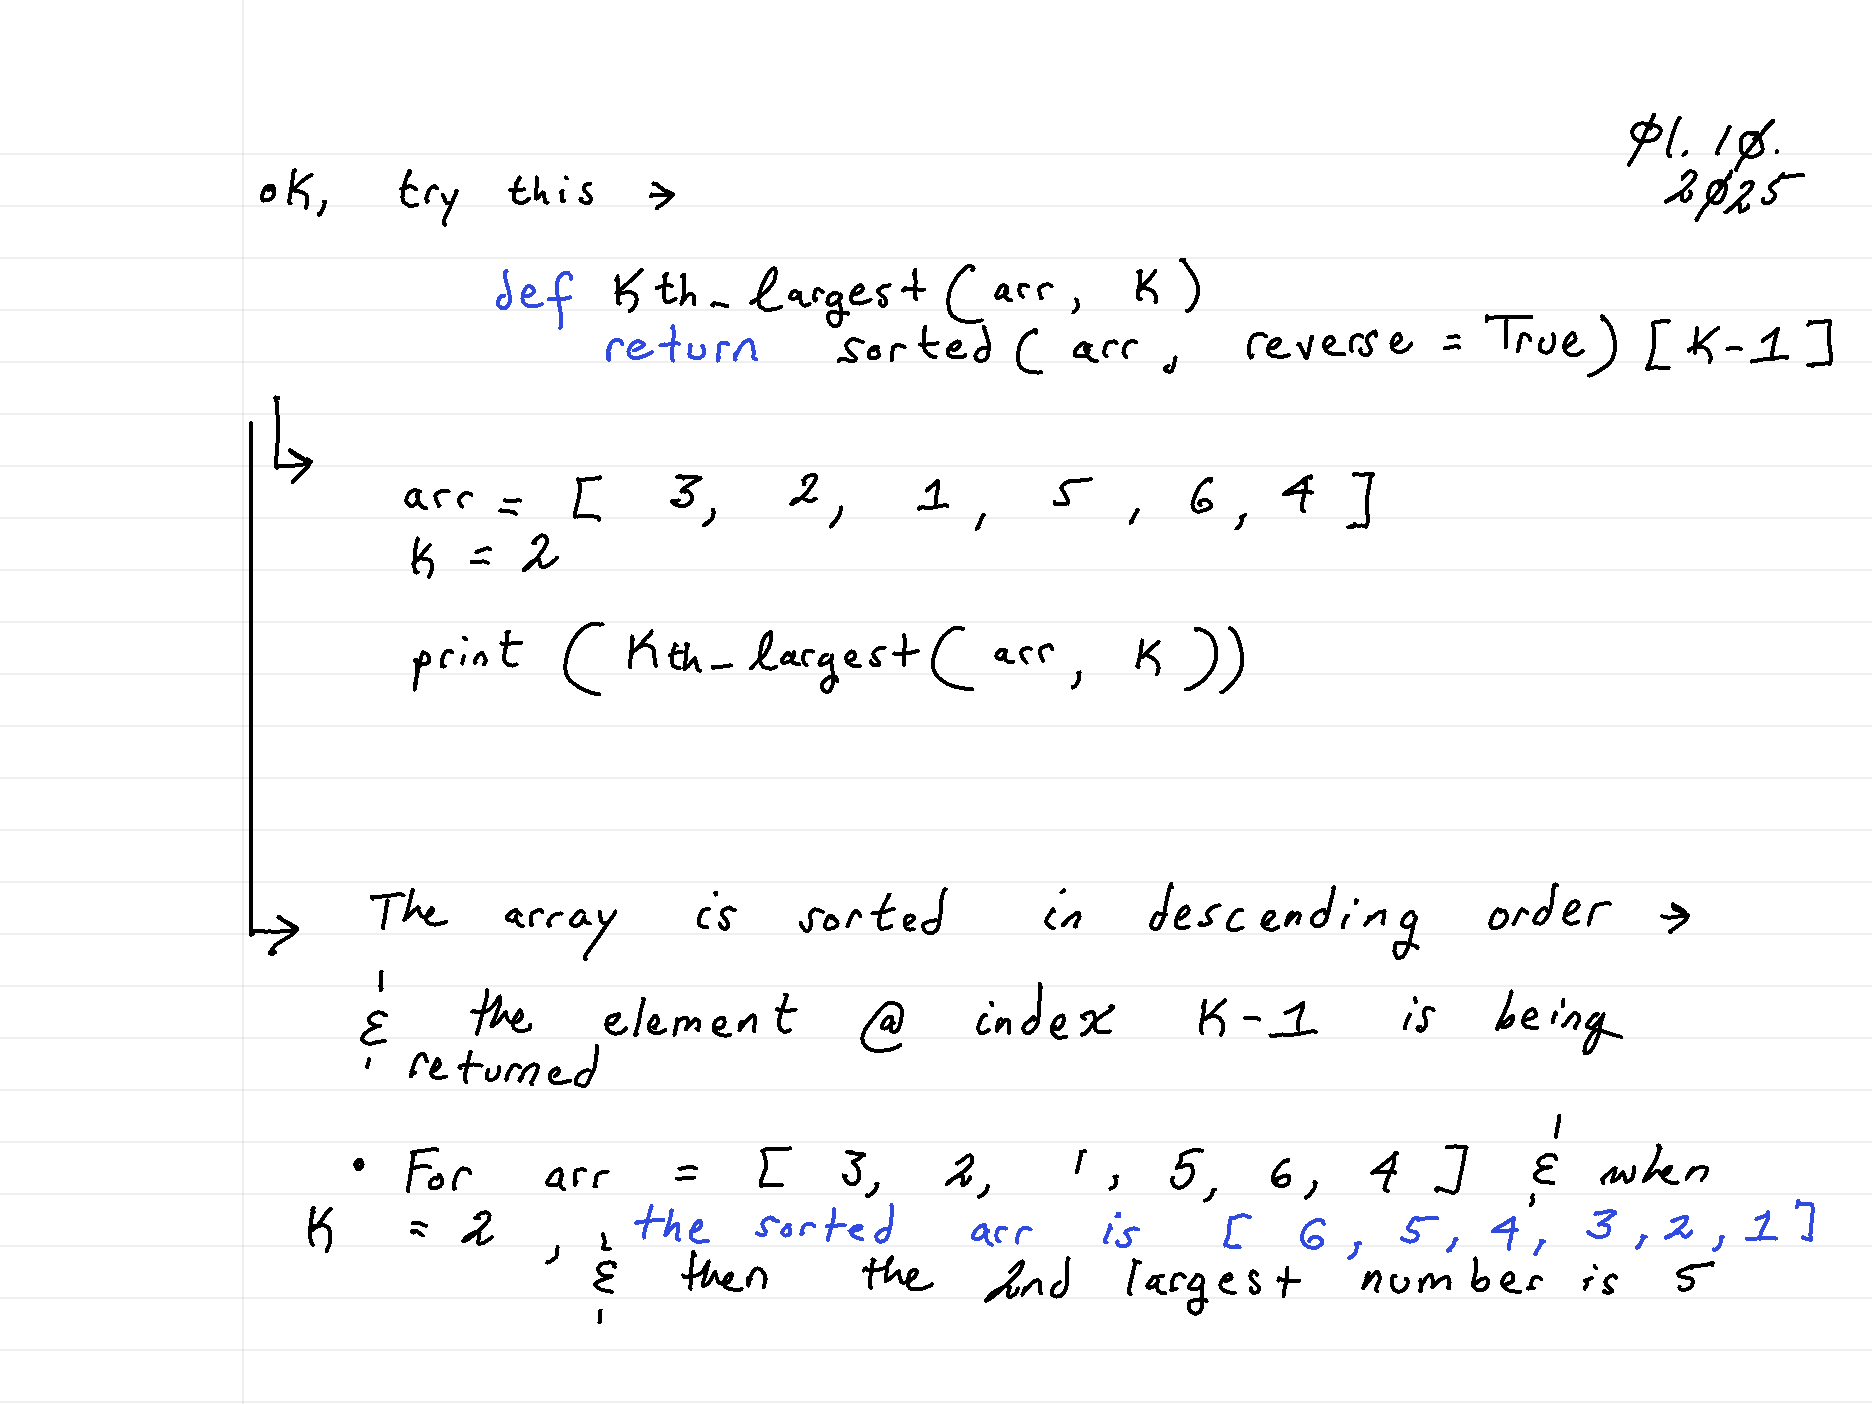 01.10.
2025
ok, try this →
def kth_largest(arr, k)
return sorted(arr, reverse = True)[k-1]
arr = [ 3, 2, 1, 5, 6, 4 ]
k = 2
print (kth_largest(arr, k))
The array is sorted in descending order →
& the element @ index k-1 is being
returned
• For arr = [ 3, 2, 1, 5, 6, 4 ] & when
k = 2, the sorted arr is [ 6, 5, 4, 3, 2, 1 ]
& then the 2nd largest number is 5